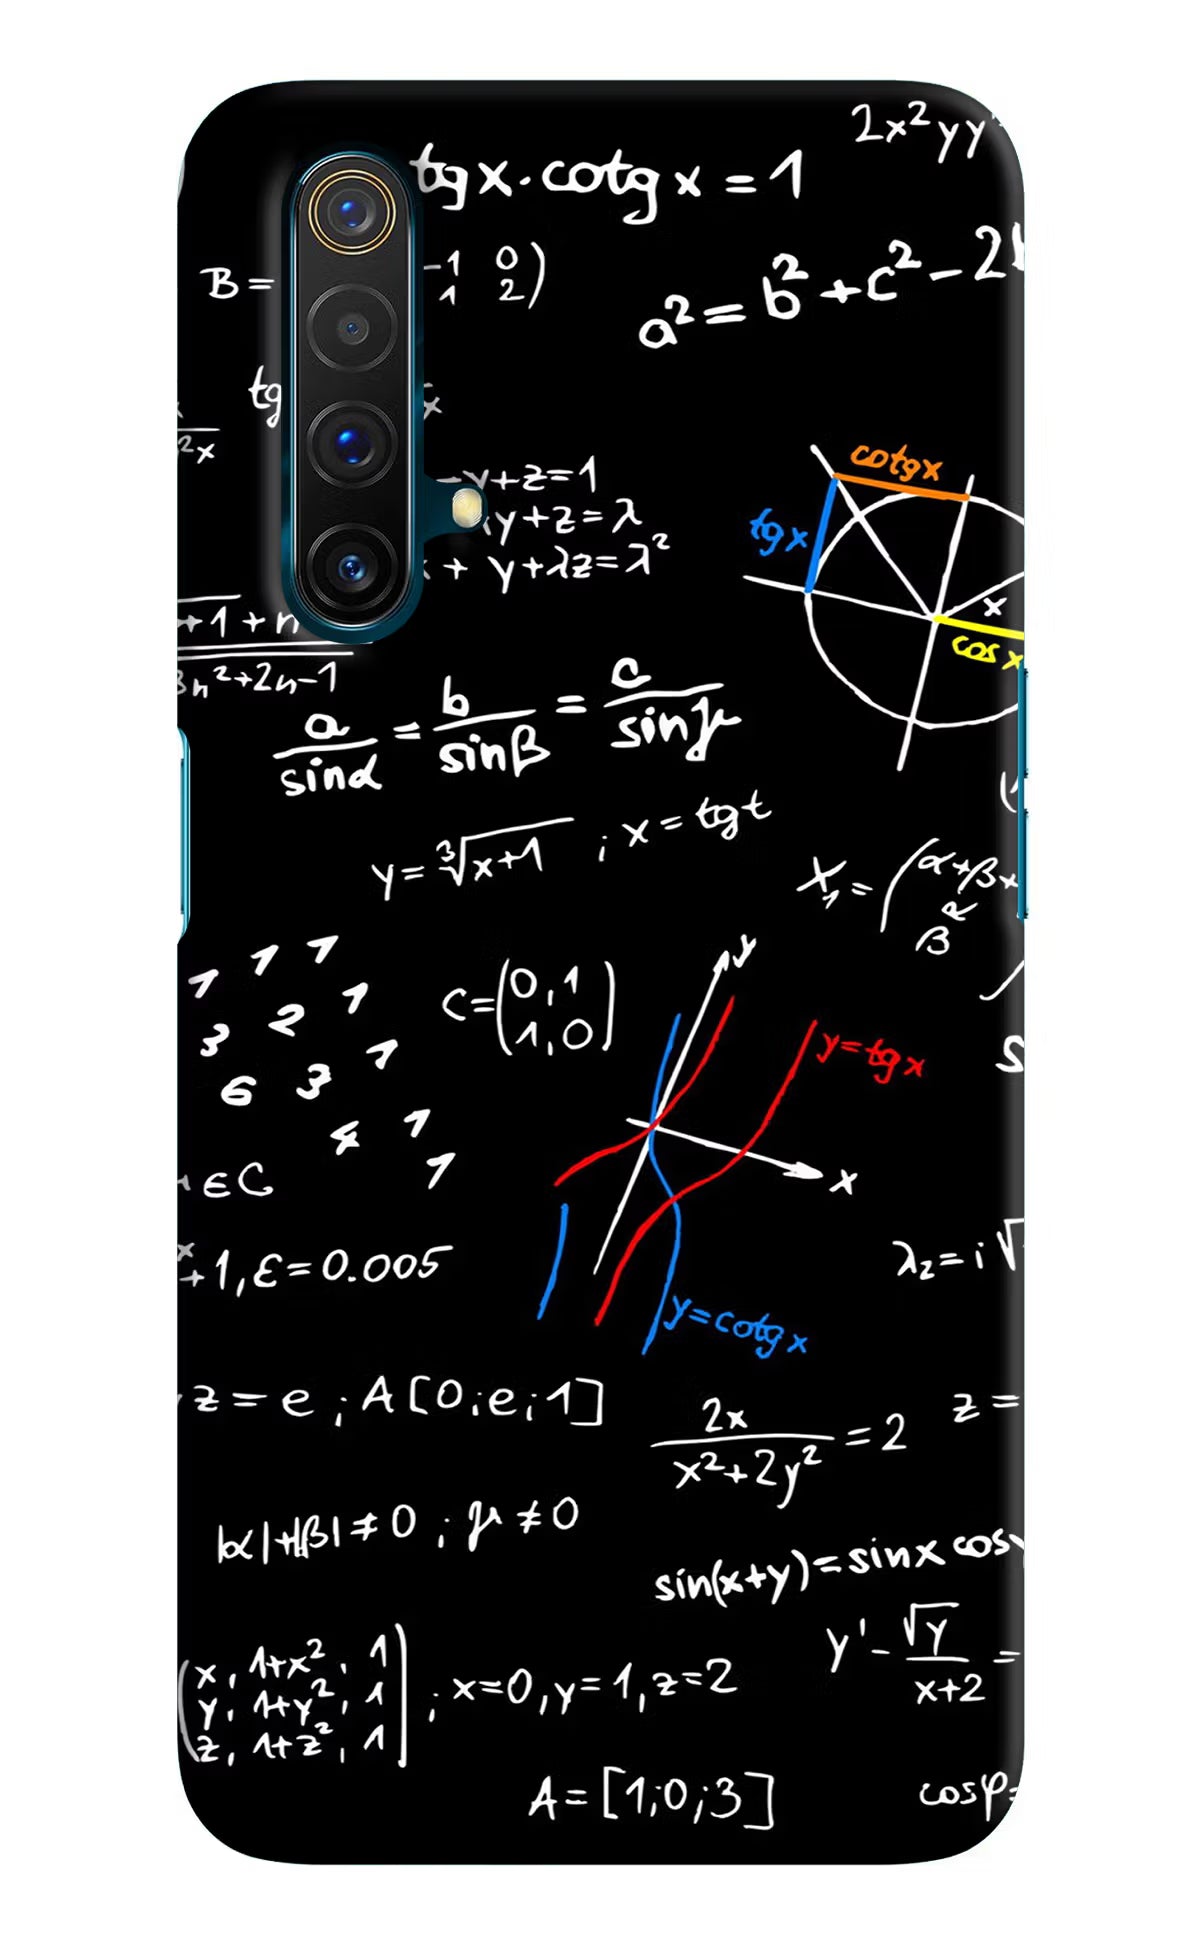 2x²yy
tgx·cotgx=1
B= -1 0)
1 2)
a²=b²+c²-2
tg x
2x
-y+z=1
y+z=λ
+ y+λz=λ²
cotgx
tgx
x
cosx
+1+n
3n²+2n-1
a/sinα = b/sinβ = c/sinγ
y=∛x+1 ; x=tgt
X₁=(α+β+
β α
1 1 1
1 2 3
1 3 6
4 1
1
C=(0,1
1,0)
y
y=tgx
x
y=cotgx
∈C
x
+1,ε=0.005
λ₂=i√
z=e ; A[0;e;1]
2x/x²+2y²=2
z=
|α|+|β|≠0 ; γ≠0
sin(x+y)=sinx cosy
y'-√y/x+2=
(x, 1+x², 1
y, 1+y², 1
z, 1+z², 1) ; x=0,y=1,z=2
A=[1;0;3]
cosφ=